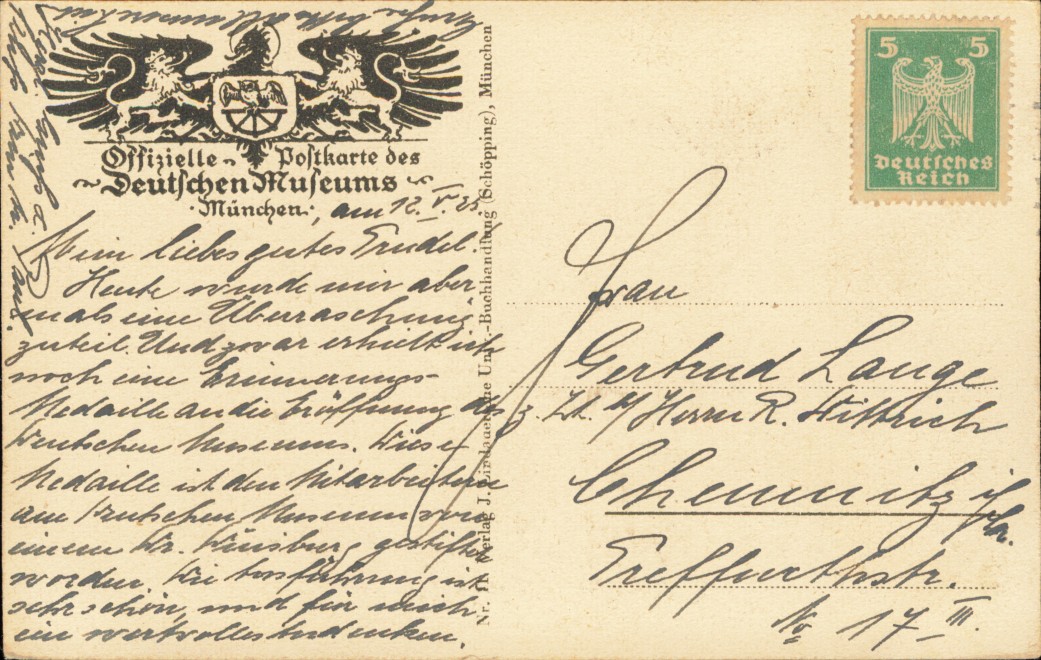 Offizielle Postkarte des
Deutschen Museums
München, am 12. V. 25
Mein liebes gutes Trudel!
Heute wurde mir aber
mals eine Überraschung
zuteil. Und zwar erhielt ich
noch eine Erinnerungs-
Medaille an die Eröffnung des
Deutschen Museums. Diese
Medaille ist den Mitarbeitern
am Deutschen Museum von
einem Dr. Günsberg gestiftet
worden. Die Ausführung ist
sehr schön, und für mich
ein wertvolles Andenken.
Paul.
Nr. 11 Verlag J. Lindauersche Univ.-Buchhandlung (Schöpping), München
5 5
Deutsches
Reich
Frau
Gertrud Lange
z. Zt. b/ Herrn R. Wittrich
Chemnitz i/Sa.
Treffurthstr.
No 17 III.